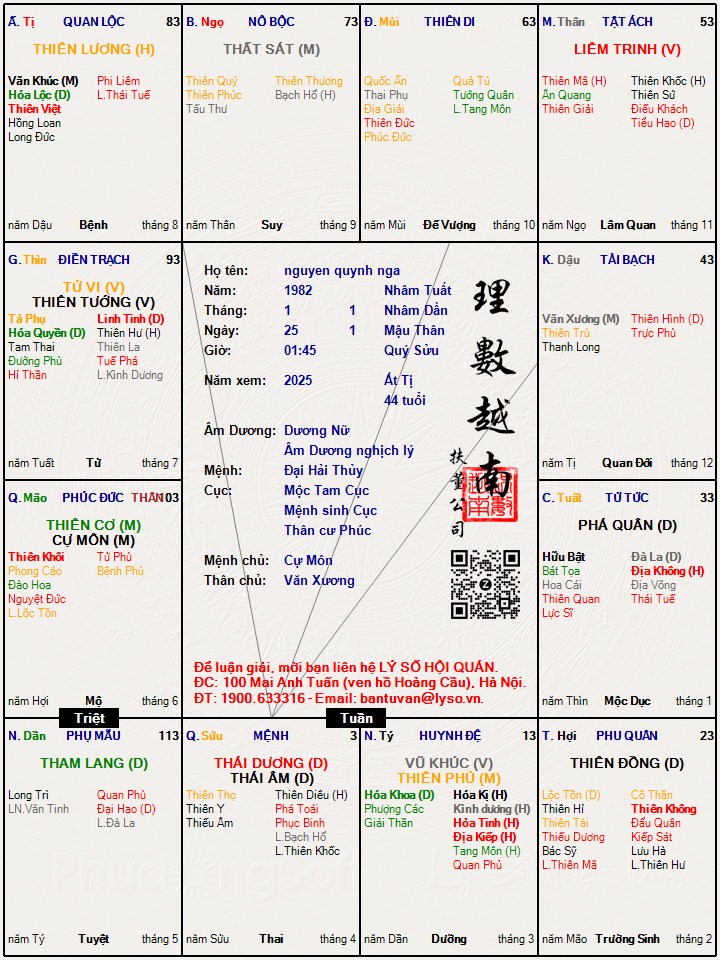 Ấ. Tị QUAN LỘC 83
THIÊN LƯƠNG (H)
Văn Khúc (M) Phi Liêm
Hóa Lộc (D) L.Thái Tuế
Thiên Việt
Hồng Loan
Long Đức
năm Dậu Bệnh tháng 8
B. Ngọ NÔ BỘC 73
THẤT SÁT (M)
Thiên Quý Thiên Thương
Thiên Phúc Bạch Hổ (H)
Tấu Thư
năm Thân Suy tháng 9
Đ. Mùi THIÊN DI 63
Quốc Ấn Quả Tú
Thai Phụ Tướng Quân
Địa Giải L.Tang Môn
Thiên Đức
Phúc Đức
năm Mùi Đế Vượng tháng 10
M. Thân TẬT ÁCH 53
LIÊM TRINH (V)
Thiên Mã (H) Thiên Khốc (H)
Ân Quang Thiên Sứ
Thiên Giải Điếu Khách
Tiểu Hao (D)
năm Ngọ Lâm Quan tháng 11
G. Thìn ĐIỀN TRẠCH 93
TỬ VI (V)
THIÊN TƯỚNG (V)
Tả Phụ Linh Tinh (D)
Hóa Quyền (D) Thiên Hư (H)
Tam Thai Thiên La
Đường Phù Tuế Phá
Hỉ Thần L.Kình Dương
năm Tuất Tử tháng 7
Họ tên: nguyen quynh nga
Năm: 1982 Nhâm Tuất
Tháng: 1 1 Nhâm Dần
Ngày: 25 1 Mậu Thân
Giờ: 01:45 Quý Sửu
Năm xem: 2025 Ất Tị
44 tuổi
Âm Dương: Dương Nữ
Âm Dương nghịch lý
Mệnh: Đại Hải Thủy
Cục: Mộc Tam Cục
Mệnh sinh Cục
Thân cư Phúc
Mệnh chủ: Cự Môn
Thân chủ: Văn Xương
理數越南
扶董公司
Để luận giải, mời bạn liên hệ LÝ SỐ HỘI QUÁN.
ĐC: 100 Mai Anh Tuấn (ven hồ Hoàng Cầu), Hà Nội.
ĐT: 1900.633316 - Email: bantuvan@lyso.vn.
K. Dậu TÀI BẠCH 43
Văn Xương (M) Thiên Hình (D)
Thiên Trù Trực Phù
Thanh Long
năm Tị Quan Đới tháng 12
Q. Mão PHÚC ĐỨC THÂN 103
THIÊN CƠ (M)
CỰ MÔN (M)
Thiên Khôi Tử Phù
Phong Cáo Bệnh Phù
Đào Hoa
Nguyệt Đức
L.Lộc Tồn
năm Hợi Mộ tháng 6
C. Tuất TỬ TỨC 33
PHÁ QUÂN (D)
Hữu Bật Đà La (D)
Bát Tọa Địa Không (H)
Hoa Cái Địa Võng
Thiên Quan Thái Tuế
Lực Sĩ
năm Thìn Mộc Dục tháng 1
Triệt
Tuần
N. Dần PHỤ MẪU 113
THAM LANG (D)
Long Trì Quan Phù
LN.Văn Tinh Đại Hao (D)
L.Đà La
năm Tý Tuyệt tháng 5
Q. Sửu MỆNH 3
THÁI DƯƠNG (D)
THÁI ÂM (D)
Thiên Thọ Thiên Diêu (H)
Thiên Y Phá Toái
Thiếu Âm Phục Binh
L.Bạch Hổ
L.Thiên Khốc
năm Sửu Thai tháng 4
N. Tý HUYNH ĐỆ 13
VŨ KHÚC (V)
THIÊN PHỦ (M)
Hóa Khoa (D) Hóa Kị (H)
Phượng Các Kình dương (H)
Giải Thần Hỏa Tinh (H)
Địa Kiếp (H)
Tang Môn (H)
Quan Phủ
năm Dần Dưỡng tháng 3
T. Hợi PHU QUÂN 23
THIÊN ĐỒNG (D)
Lộc Tồn (D) Cô Thần
Thiên Hỉ Thiên Không
Thiên Tài Đẩu Quân
Thiếu Dương Kiếp Sát
Bác Sỹ Lưu Hà
L.Thiên Mã L.Thiên Hư
năm Mão Trường Sinh tháng 2